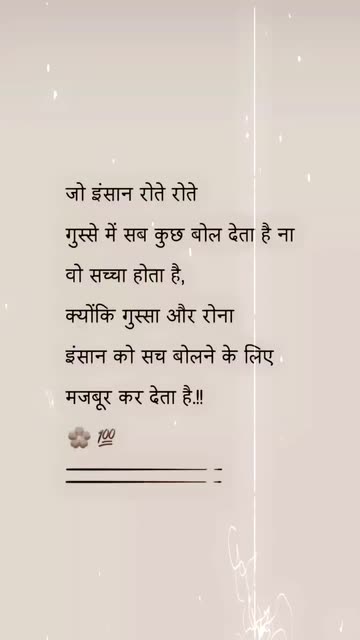 जो इंसान रोते रोते
गुस्से में सब कुछ बोल देता है ना
वो सच्चा होता है,
क्योंकि गुस्सा और रोना
इंसान को सच बोलने के लिए
मजबूर कर देता है.!!
🌸 💯